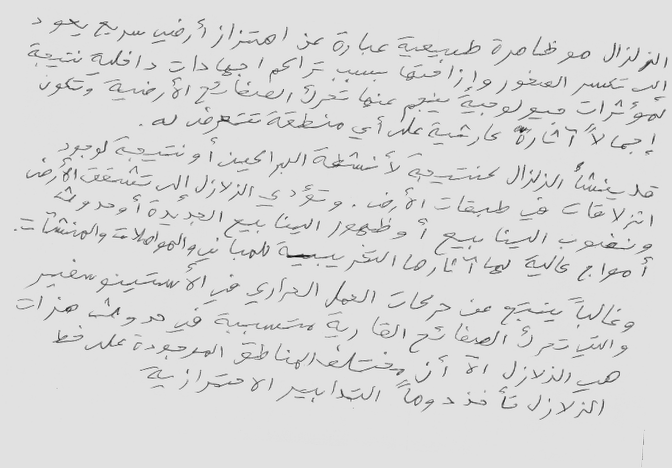 الزلزال هو ظاهرة طبيعية عبارة عن اهتزاز أرضي سريع يعود
الى تكسر الصخور وإزاحتها بسبب تراكم اجهادات داخلية نتيجة
لمؤثرات جيولوجية ينجم عنها تحرك الصفائح الأرضية وتكون
إجمالاً آثارة كارثية على أي منطقة تتعرض له.
قد ينشأ الزلزال كنتيجة لأنشطة البراكين أو نتيجة لوجود
انزلاقات في طبقات الأرض. وتؤدي الزلازل إلى تشقق الأرض
ونضوب الينابيع أو ظهور الينابيع الجديدة أو حدوث
أمواج عالية لها آثارها التخريبية للمباني والمواصلات والمنشآت.
وغالباً ينتج عن حركات الحمل الحراري في الأستينوسفير
والتي تحرك الصفائح القارية متسببة في حدوث هزات
هي الزلازل الآ أن مختلف المناطق الموجودة على خط
الزلازل تأخذ دوماً التدابير الاحترازية